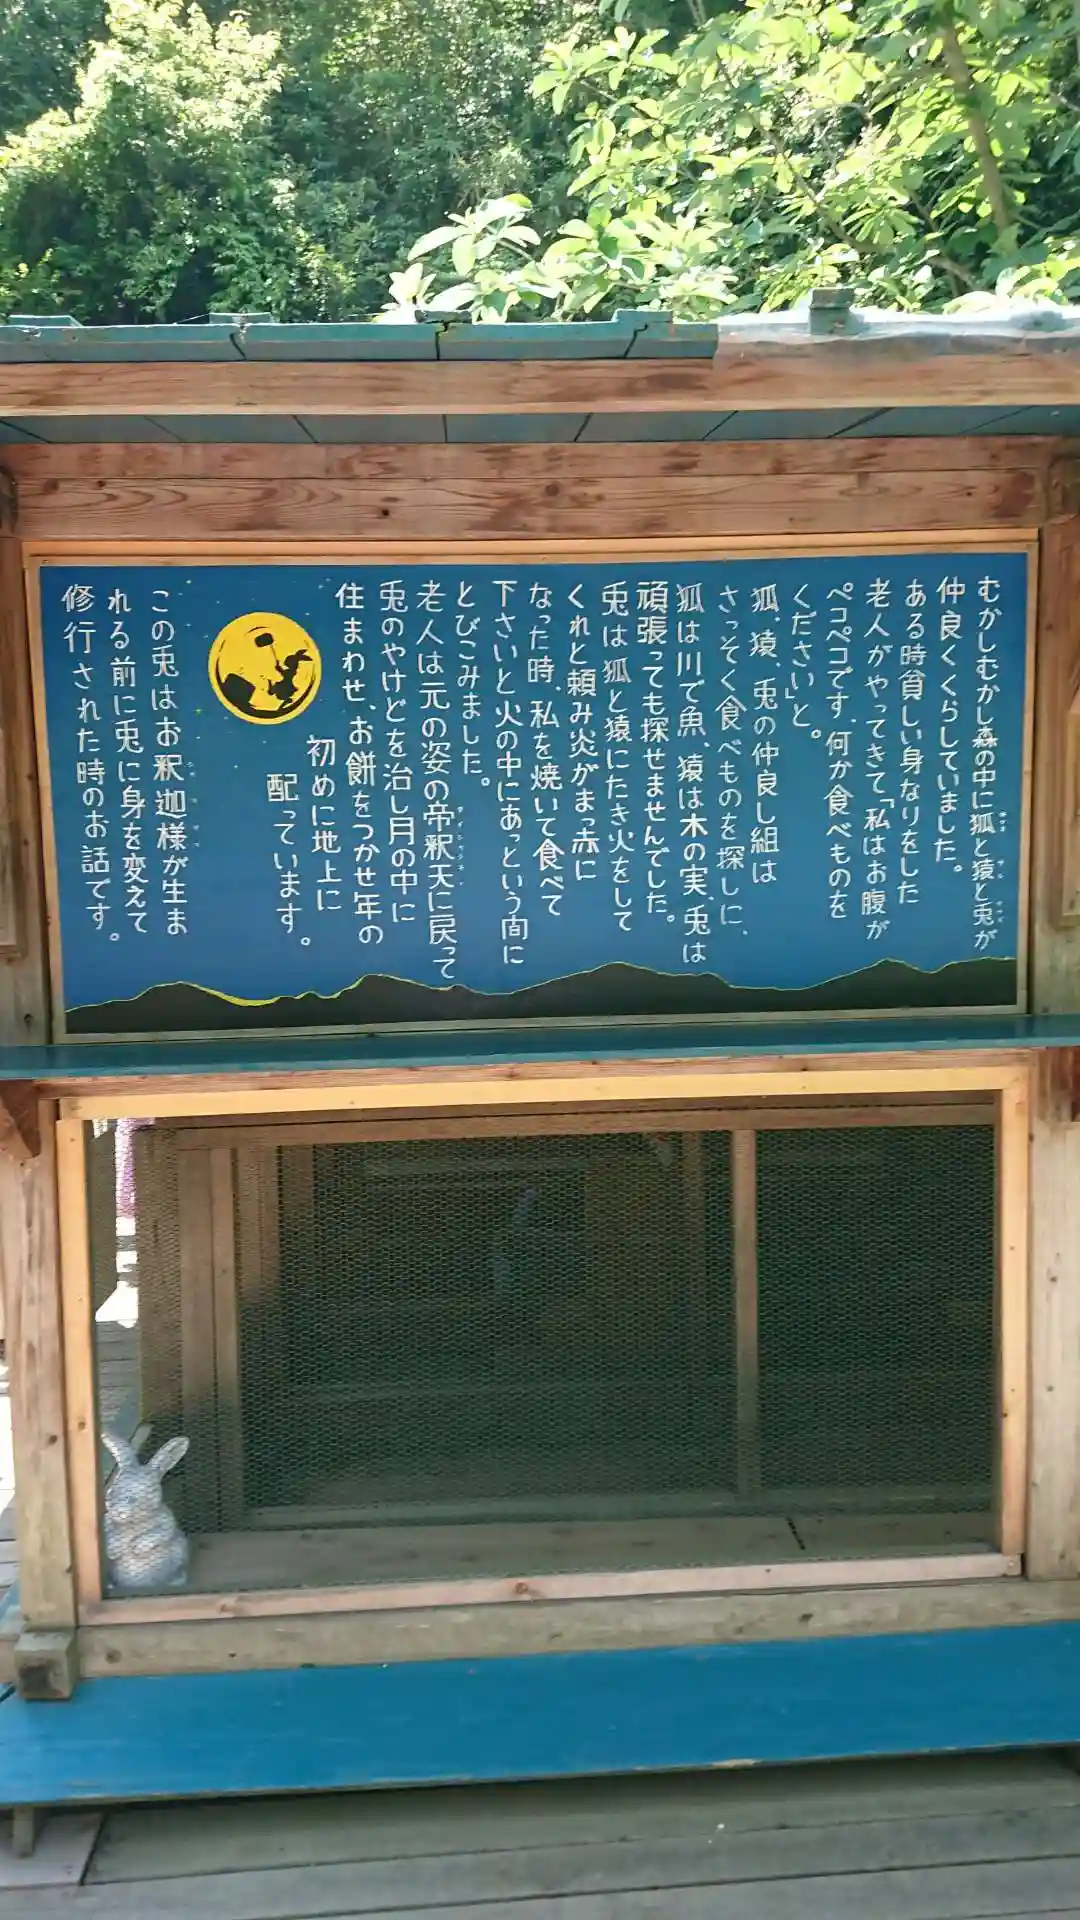 むかしむかし森の中に狐と猿と兎が
仲良くくらしていました。
ある時貧しい身なりをした
老人がやってきて「私はお腹が
ペコペコです、何か食べものを
ください」と。
狐、猿、兎の仲良し組は
さっそく食べものを探しに、
狐は川で魚、猿は木の実、兎は
頑張っても探せませんでした。
兎は狐と猿にたき火をして
くれと頼み炎がまっ赤に
なった時、私を焼いて食べて
下さいと火の中にあっという間に
とびこみました。
老人は元の姿の帝釈天に戻って
兎のやけどを治し月の中に
住まわせ、お餅をつかせ年の
初めに地上に
配っています。
この兎はお釈迦様が生ま
れる前に兎に身を変えて
修行された時のお話です。